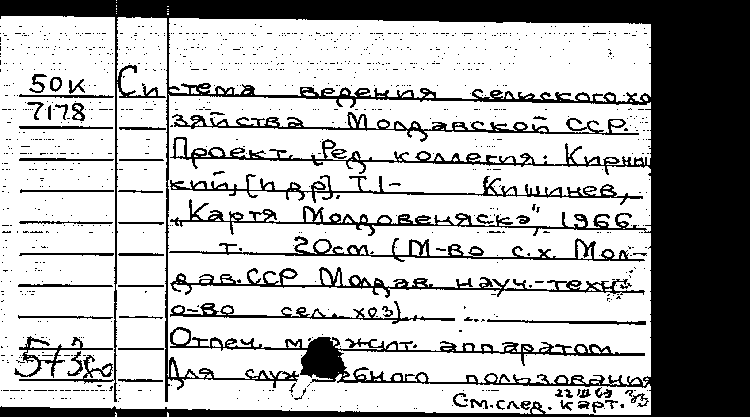 50К Система ведения сельского хо
7178 зяйства Молдавской ССР.
Проект. [Ред. коллегия: Кирниц
кий, [и др]. Т.1- Кишинев,
"Картя Молдовеняскэ", 1966.
т. 20см. (М-во с.х. Мол-
дав. ССР Молдав. науч.-техн
о-во сел. хоз)
Отпеч. множит. аппаратом.
Для служебного пользования
См.след. карт.